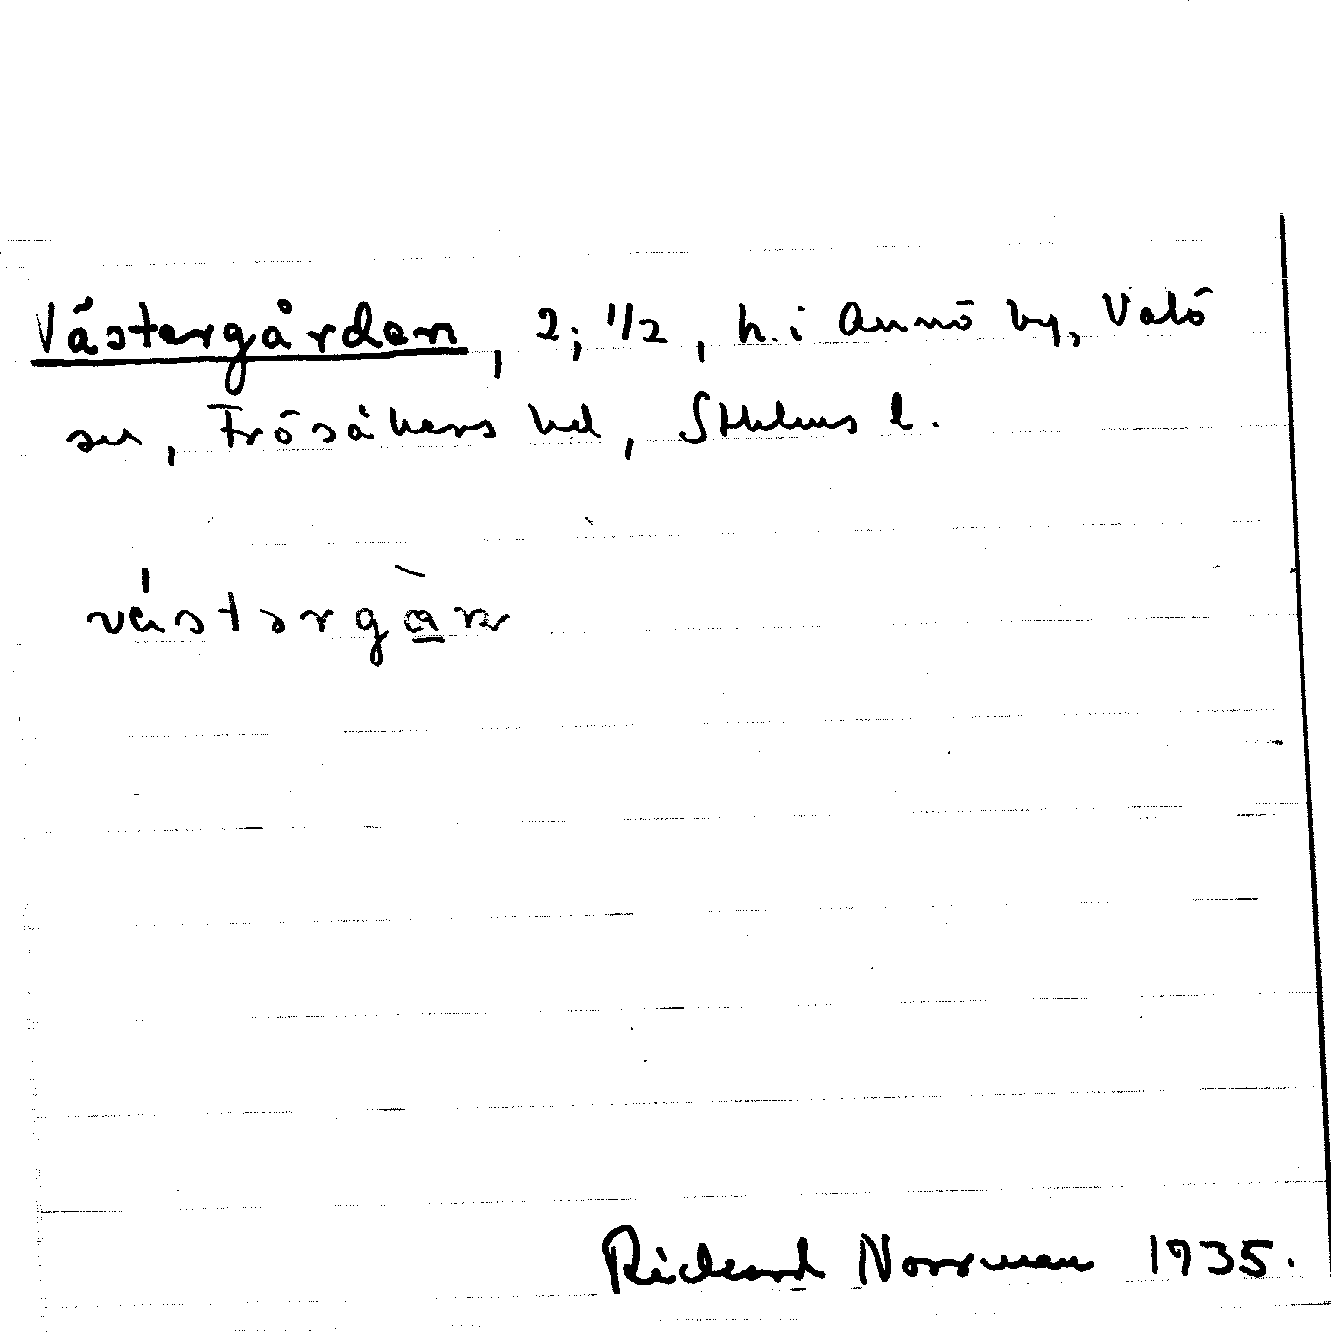 Västergården, 2; 1/2, h. i Annö by, Valö
sn, Frösåkers hd, Sthlms l.
västərgȧ̲n
Richard Norrman 1935.